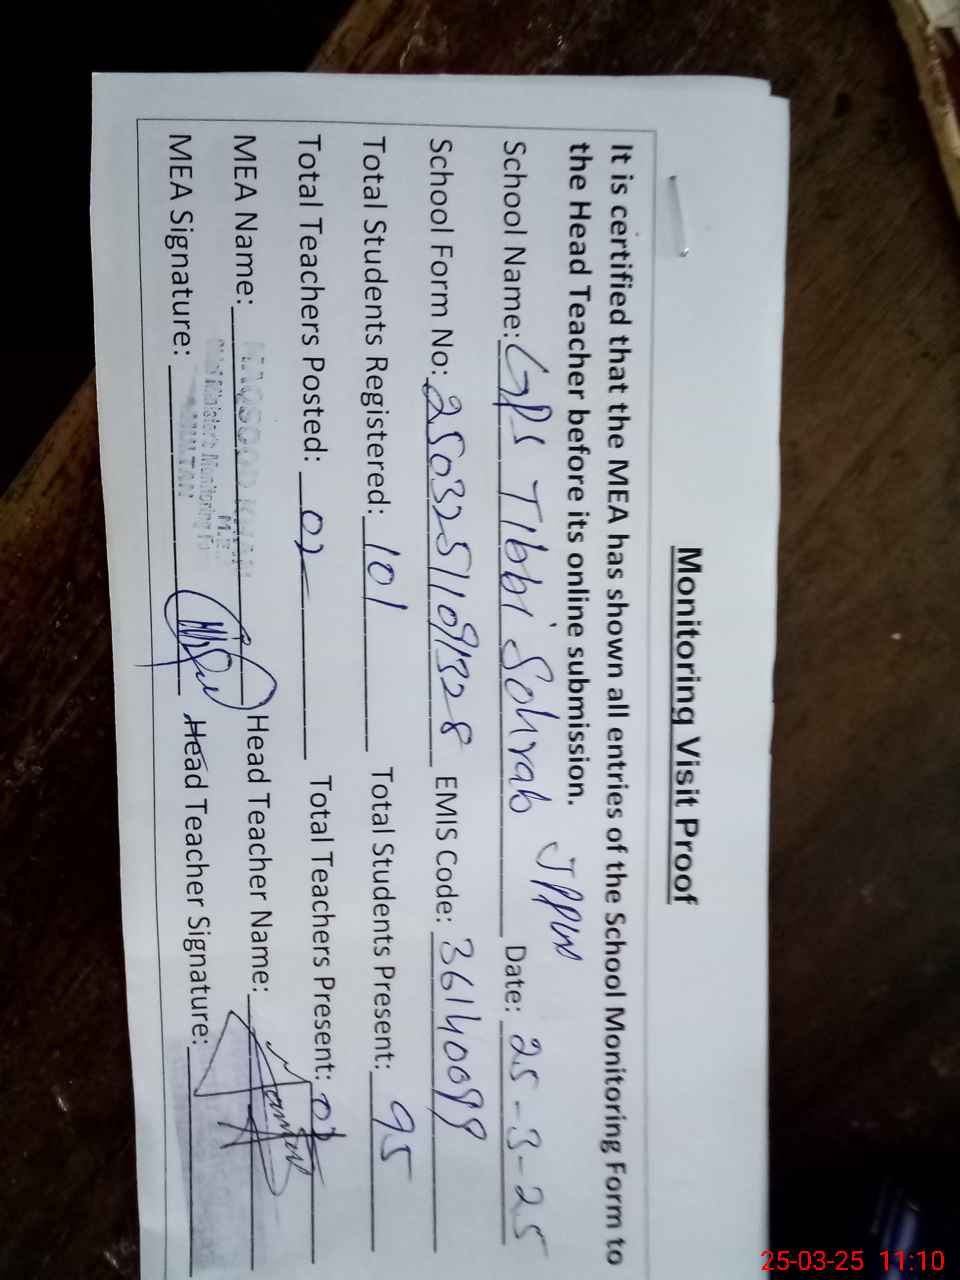 Monitoring Visit Proof
It is certified that the MEA has shown all entries of the School Monitoring Form to
the Head Teacher before its online submission.
School Name: GPS Tibbi Sohrab JPPW Date: 25-3-25
School Form No: 25032511091328 EMIS Code: 36140099
Total Students Registered: 101 Total Students Present: 95
Total Teachers Posted: 02 Total Teachers Present: 02
MEA Name: MAQSOOD KHAN Head Teacher Name:
Chief Minister's Monitoring
MULTAN
MEA Signature: Head Teacher Signature:
25-03-25 11:10